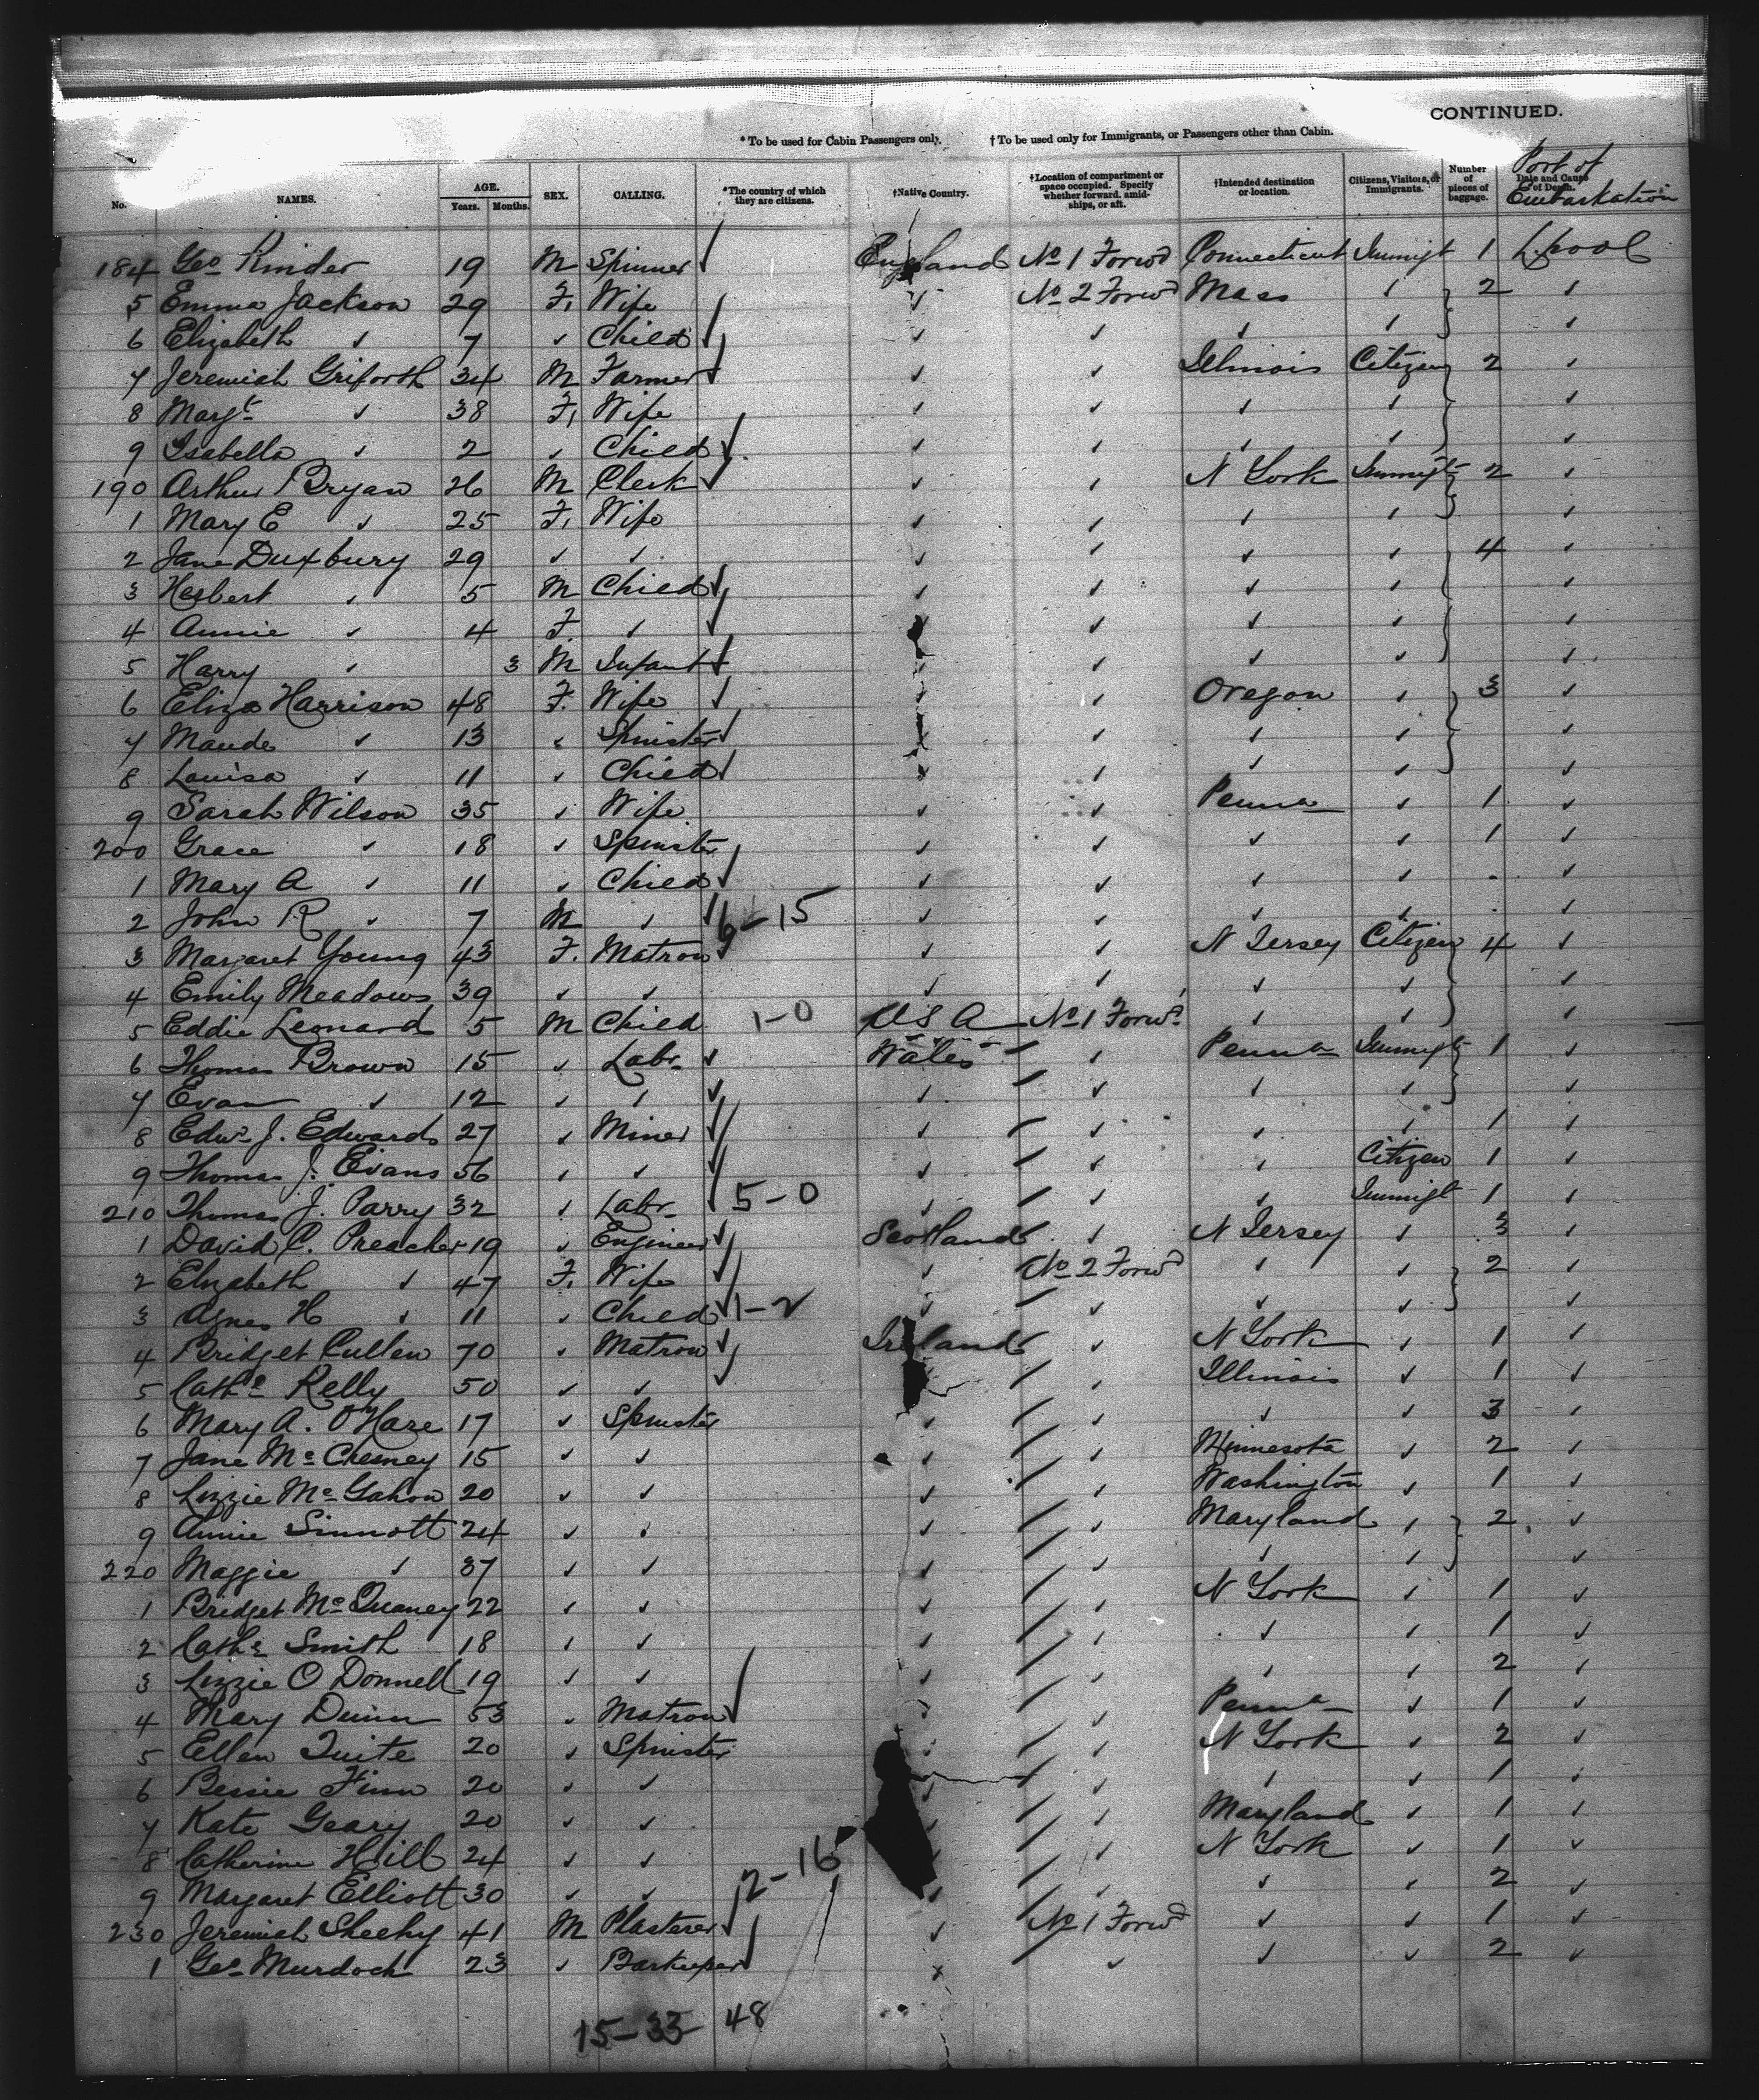 CONTINUED.
* To be used for Cabin Passengers only. † To be used only for Immigrants, or Passengers other than Cabin.
No. NAMES. AGE. Years. Months. SEX. CALLING. *The country of which they are citizens. †Native Country. †Location of compartment or space occupied. Specify whether forward, amidships, or aft. †Intended destination or location. Citizens, Visitors, or Immigrants. Number of pieces of baggage. Date and Cause of Death. Port of Embarkation
184 Geo Kinder 19 M Spinner ✓ England No 1 Forwd Connecticut Immigt 1 L'pool
5 Emma Jackson 29 F. Wife ✓ No 2 Forwd Mass ✓ 2 ✓
6 Elizabeth ✓ 7 ✓ Child ✓ ✓ ✓ ✓ ✓ ✓
7 Jeremiah Griforth 34 M Farmer ✓ ✓ ✓ Illinois Citizen 2 ✓
8 Margt ✓ 38 F. Wife ✓ ✓ ✓ ✓ ✓
9 Isabella ✓ 2 ✓ Child ✓ ✓ ✓ ✓ ✓ ✓
190 Arthur Bryan 26 M Clerk ✓ ✓ ✓ N York Immigt 2 ✓
1 Mary E ✓ 25 F. Wife ✓ ✓ ✓ ✓ ✓
2 Jane Duxbury 29 ✓ ✓ ✓ ✓ ✓ ✓ 4 ✓
3 Herbert ✓ 5 M Child ✓ ✓ ✓ ✓ ✓ ✓
4 Annie ✓ 4 F. ✓ ✓ ✓ ✓ ✓ ✓ ✓
5 Harry ✓ 3 M Infant ✓ ✓ ✓ ✓ ✓ ✓
6 Eliza Harrison 48 F. Wife ✓ ✓ ✓ Oregon ✓ 3 ✓
7 Maude ✓ 13 ✓ Spinster ✓ ✓ ✓ ✓ ✓ ✓
8 Louisa ✓ 11 ✓ Child ✓ ✓ ✓ ✓ ✓ ✓
9 Sarah Wilson 35 ✓ Wife ✓ ✓ Penna ✓ 1 ✓
200 Grace ✓ 18 ✓ Spinster ✓ ✓ ✓ ✓ 1 ✓
1 Mary A ✓ 11 ✓ Child ✓ ✓ ✓ ✓ ✓ ✓
2 John R ✓ 7 M ✓ ✓ 6-15 ✓ ✓ ✓ ✓ ✓
3 Margaret Young 43 F. Matron ✓ ✓ ✓ N Jersey Citizen 4 ✓
4 Emily Meadows 39 ✓ ✓ ✓ ✓ ✓ ✓ ✓
5 Eddie Leonard 5 M Child 1-0 U S A No 1 Forwd ✓ ✓ ✓
6 Thomas Brown 15 ✓ Labr ✓ Wales ✓ Penna Immigt 1 ✓
7 Evan ✓ 12 ✓ ✓ ✓ ✓ ✓ ✓ ✓ ✓
8 Edwd J. Edwards 27 ✓ Miner ✓ ✓ ✓ ✓ ✓ 1 ✓
9 Thomas J. Evans 56 ✓ ✓ ✓ ✓ ✓ ✓ Citizen 1 ✓
210 Thomas J. Parry 32 ✓ Labr ✓ 5-0 ✓ ✓ ✓ Immigt 1 ✓
1 David C. Preacher 19 ✓ Engineer ✓ Scotland ✓ N Jersey ✓ 3 ✓
2 Elizabeth ✓ 47 F. Wife ✓ ✓ No 2 Forwd ✓ ✓ 2 ✓
3 Agnes H ✓ 11 ✓ Child ✓ 1-2 ✓ ✓ ✓ ✓ ✓
4 Bridget Cullen 70 ✓ Matron ✓ Ireland ✓ N York ✓ 1 ✓
5 Cathe Kelly 50 ✓ ✓ ✓ Illinois ✓ 1 ✓
6 Mary A. O'Hare 17 ✓ Spinster ✓ ✓ ✓ ✓ 3 ✓
7 Jane Mc Chesney 15 ✓ ✓ ✓ ✓ Minnesota ✓ 2 ✓
8 Lizzie Mc Gahon 20 ✓ ✓ ✓ ✓ Washington ✓ 1 ✓
9 Annie Sinnott 24 ✓ ✓ ✓ ✓ Maryland ✓ 2 ✓
220 Maggie ✓ 37 ✓ ✓ ✓ ✓ ✓ ✓ ✓
1 Bridget Mc Quaney 22 ✓ ✓ ✓ ✓ N York ✓ 1 ✓
2 Cathe Smith 18 ✓ ✓ ✓ ✓ ✓ ✓ 1 ✓
3 Lizzie O Donnell 19 ✓ ✓ ✓ ✓ ✓ ✓ 2 ✓
4 Mary Dunn 53 ✓ Matron ✓ ✓ ✓ Penna ✓ 1 ✓
5 Ellen Tuite 20 ✓ Spinster ✓ ✓ N York ✓ 2 ✓
6 Bessie Finn 20 ✓ ✓ ✓ ✓ ✓ ✓ 1 ✓
7 Kate Geary 20 ✓ ✓ ✓ Maryland ✓ 1 ✓
8 Catherine Hill 24 ✓ ✓ ✓ N York ✓ 1 ✓
9 Margaret Elliott 30 ✓ ✓ 2-16 ✓ ✓ ✓ ✓ 2 ✓
230 Jeremiah Sheehy 41 M Plasterer ✓ ✓ No 1 Forwd ✓ ✓ 1 ✓
1 Geo Murdoch 23 ✓ Barkeeper ✓ x ✓ ✓ ✓ 2 ✓
15-33 48